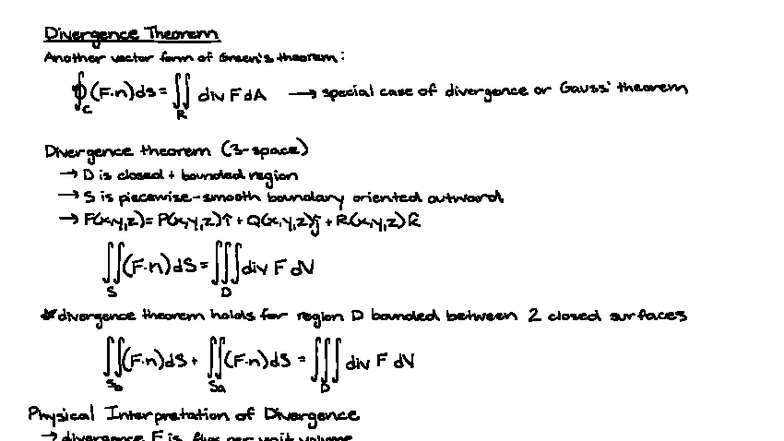 Divergence Theorem
Another vector form of Green's theorem:
∮_C (F·n)ds = ∬_R div F dA → special case of divergence or Gauss' theorem
Divergence theorem (3-space)
→ D is closed + bounded region
→ S is piecewise-smooth boundary oriented outward
→ F(x,y,z) = P(x,y,z)î + Q(x,y,z)ĵ + R(x,y,z)k̂
∬_S (F·n)dS = ∭_D div F dV
*divergence theorem holds for region D bounded between 2 closed surfaces
∬_Sb (F·n)dS + ∬_Sa (F·n)dS = ∭_D div F dV
Physical Interpretation of Divergence
→ divergence F is flux per unit volume